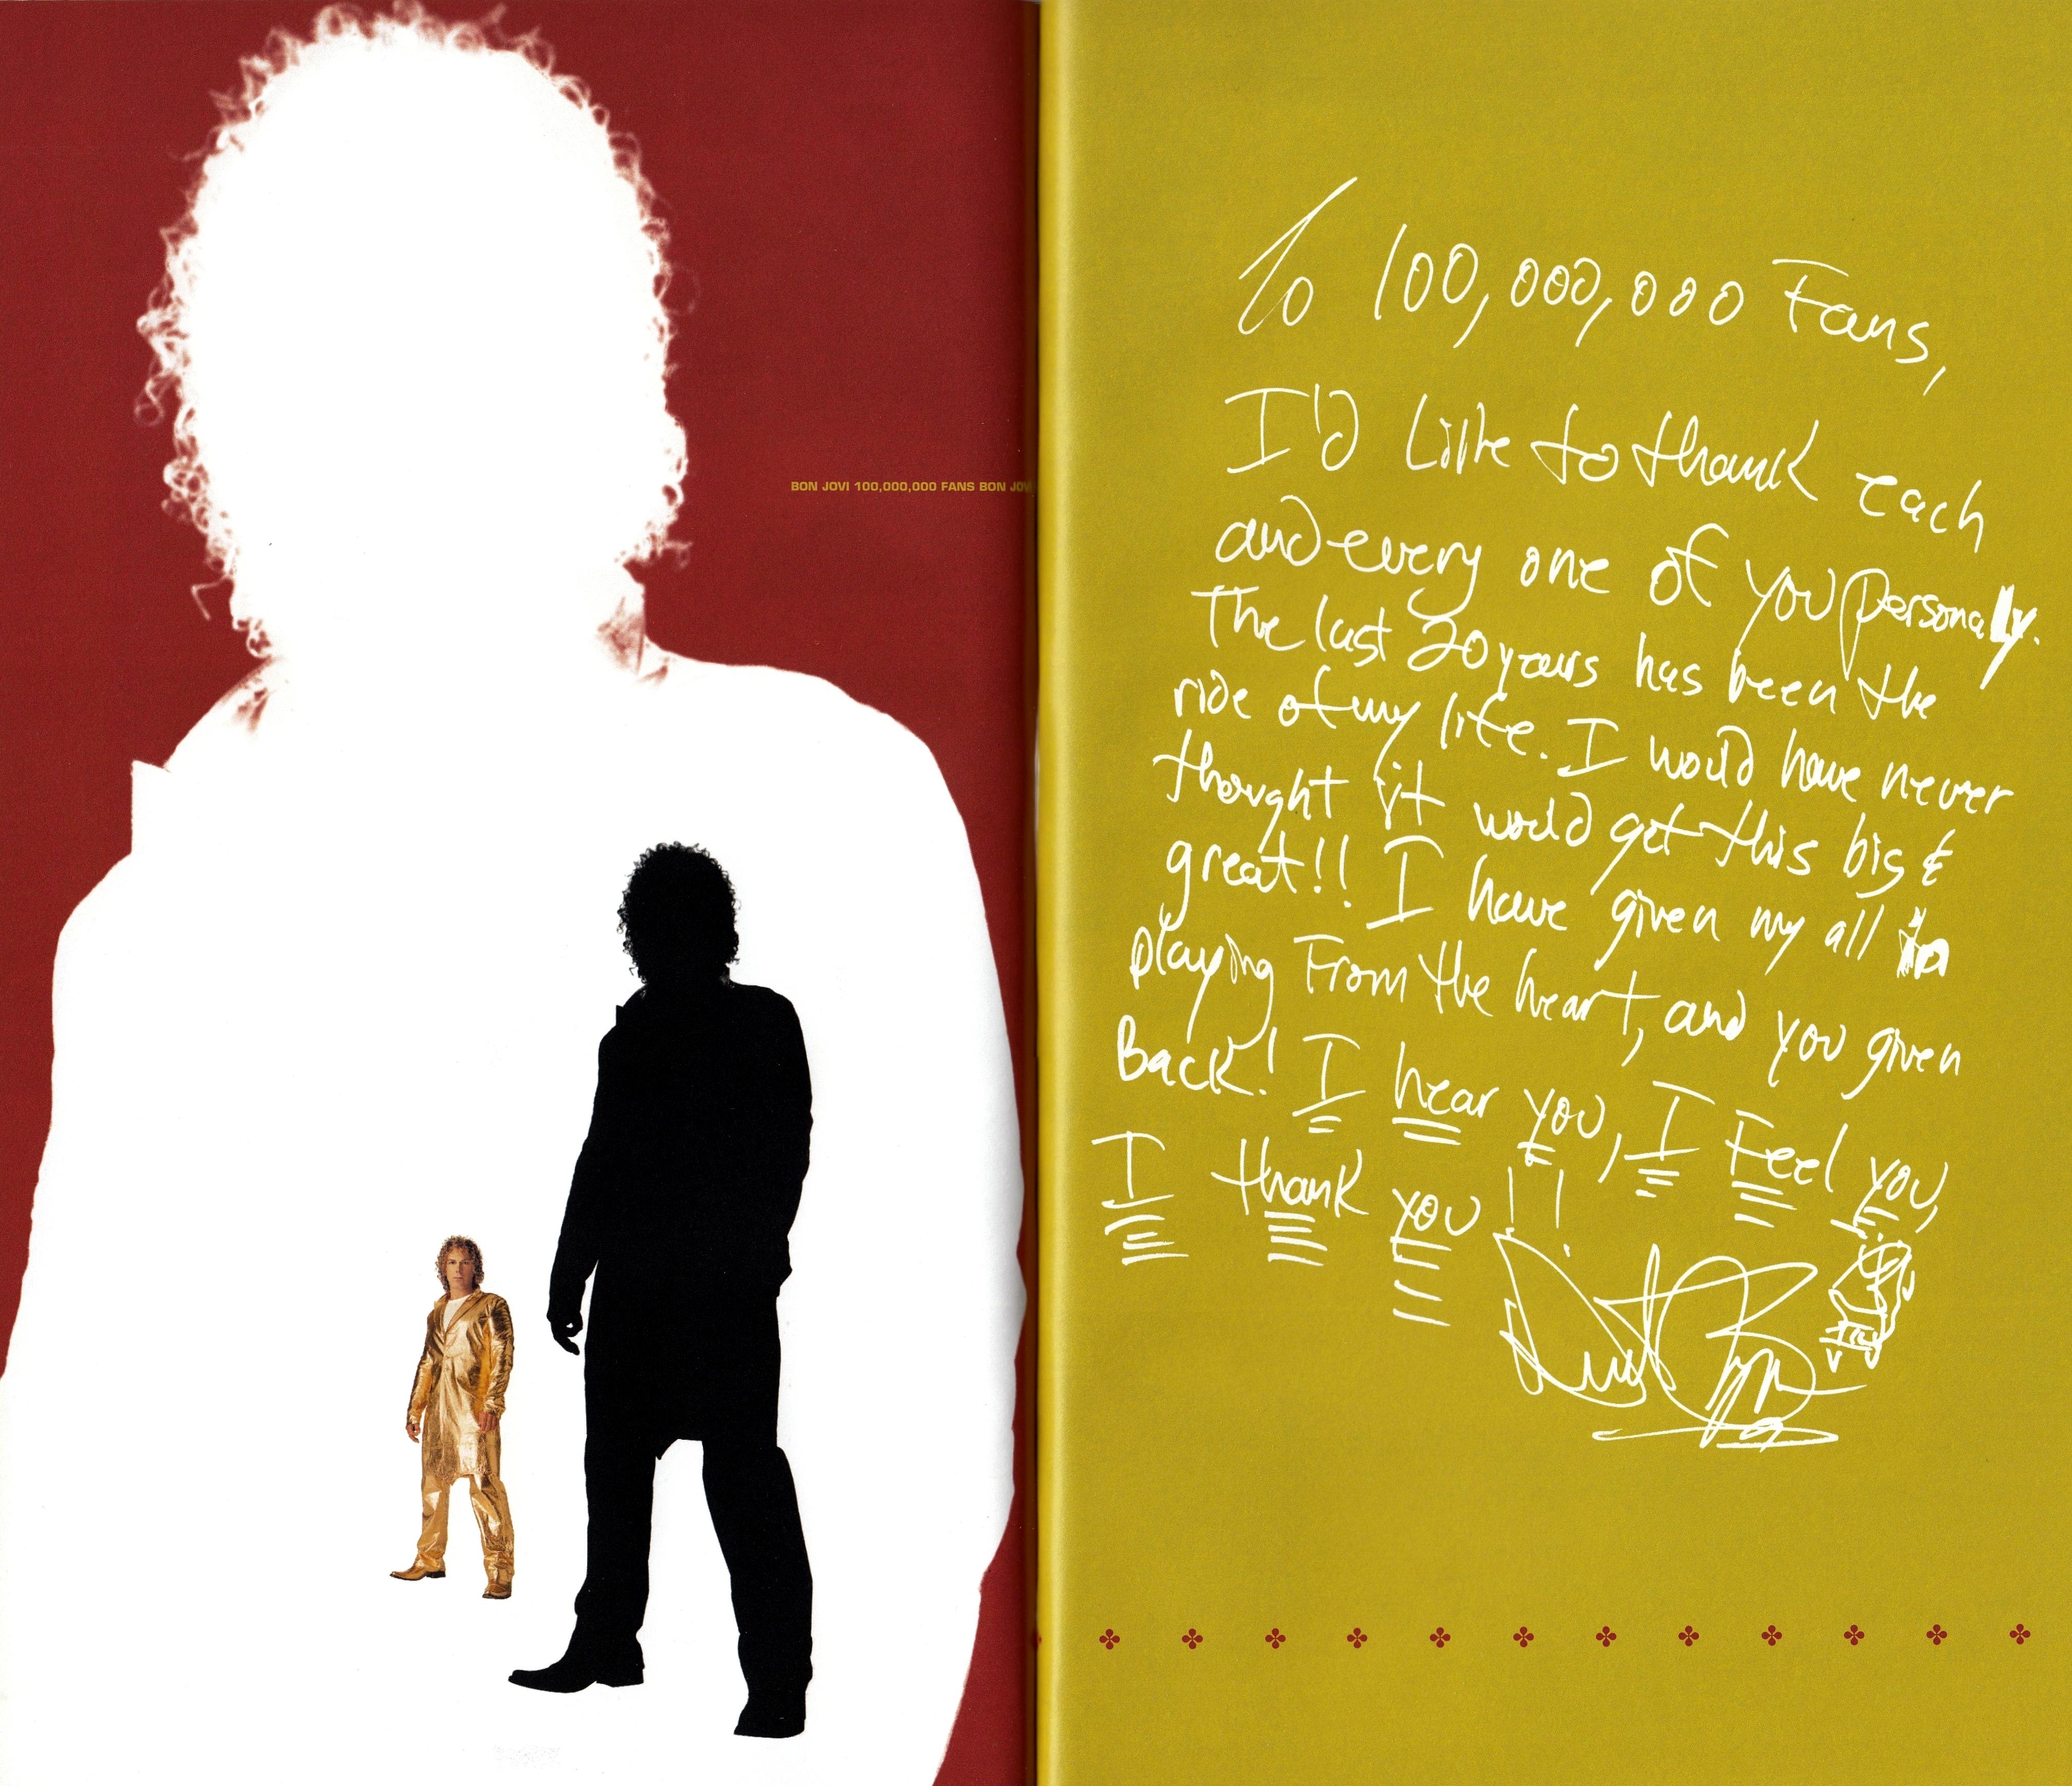 BON JOVI 100,000,000 FANS BON JOVI
To 100,000,000 Fans,
I'd Like to thank each
and every one of you personally.
The last 20 years has been the
ride of my life. I would have never
thought it would get this big &
great!! I have given my all in
playing From the heart, and you given
Back! I hear you, I Feel you,
I thank you!!